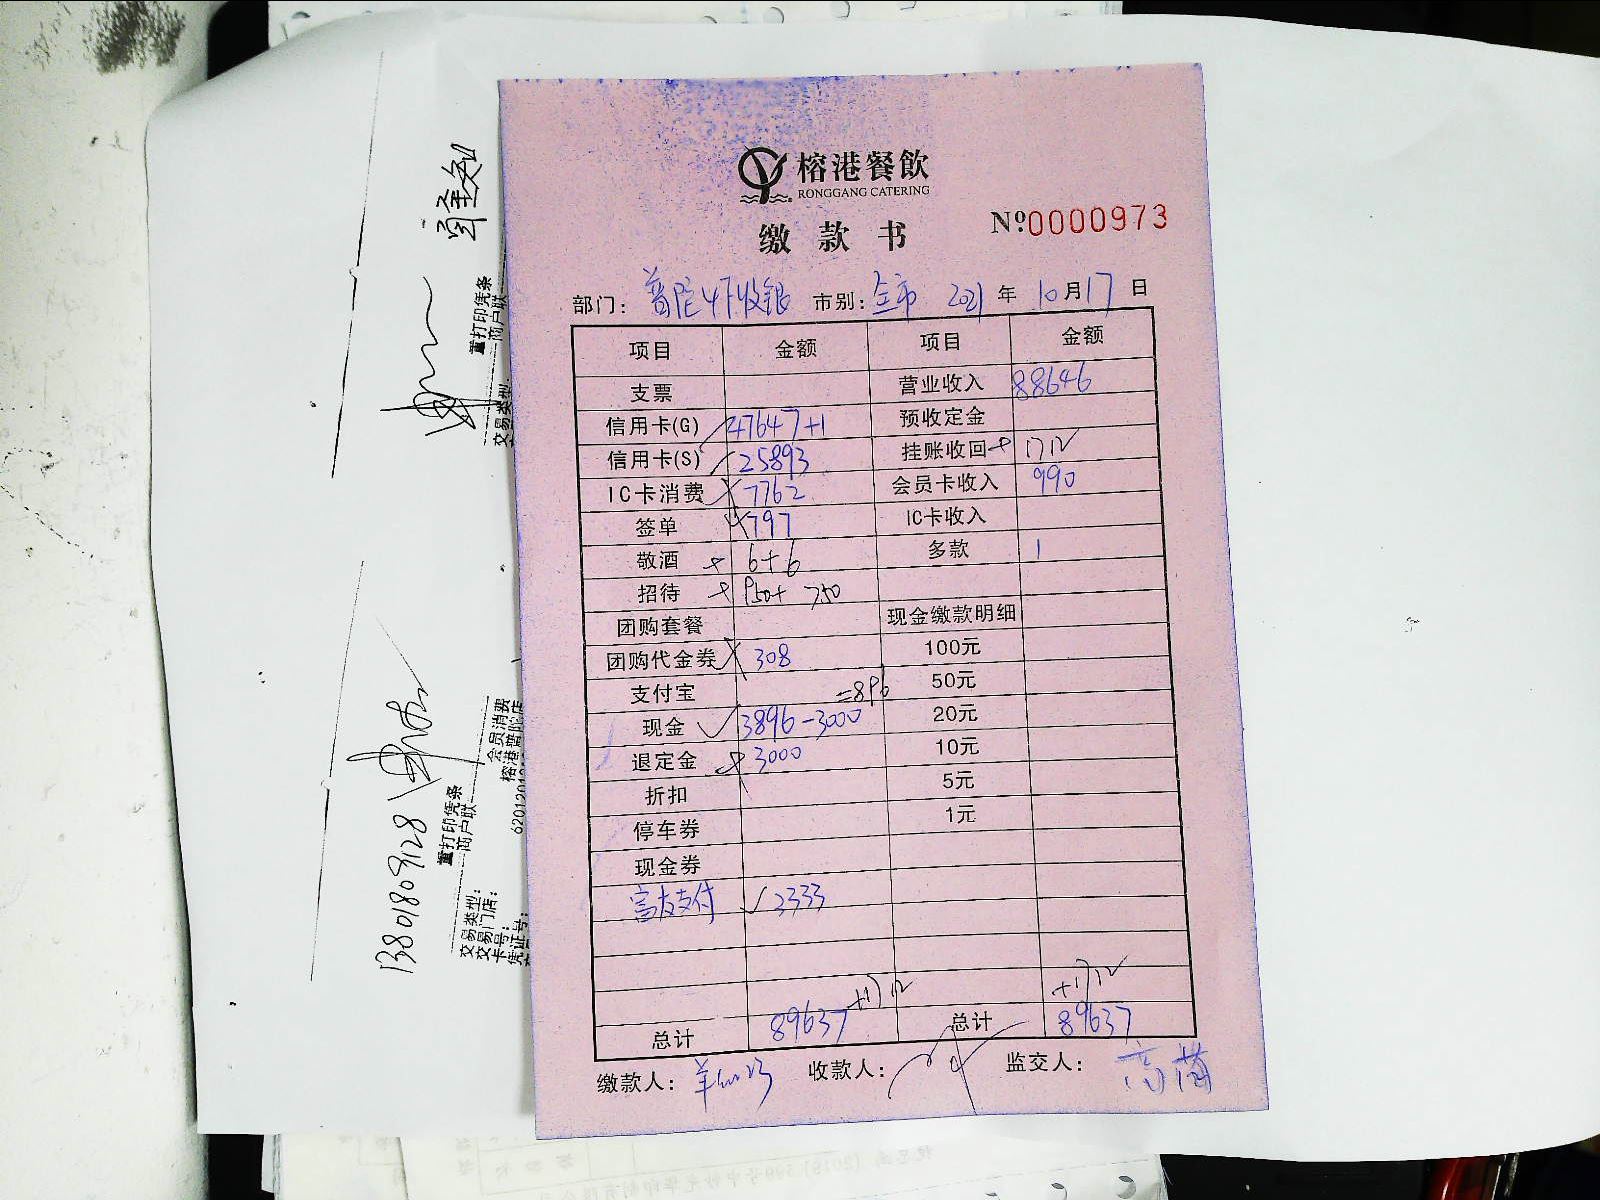 榕港餐飲
RONGGANG CATERING
缴款书
№0000973
部门: 普陀4F收银 市别: 全市 2021年10月17日
项目 金额 项目 金额
支票 营业收入 88646
信用卡(G) 47647+1 预收定金
信用卡(S) 25893 挂账收回 1712
IC卡消费 7762 会员卡收入 990
签单 797 IC卡收入
敬酒 6+6 多款 1
招待 950+ 750
团购套餐 现金缴款明细
团购代金券 308 100元
支付宝 =896 50元
现金 3896-3000 20元
退定金 3000 10元
折扣 5元
停车券 1元
现金券
富友支付 2333
+1712 +1712
总计 89637 总计 89637
缴款人: 收款人: 监交人:
重打印凭条
商户联
交易类型:
13801809128
会员消费
榕港普陀店
重打印凭条
商户联
交易类型:
交易门店:
卡号:
凭证号: